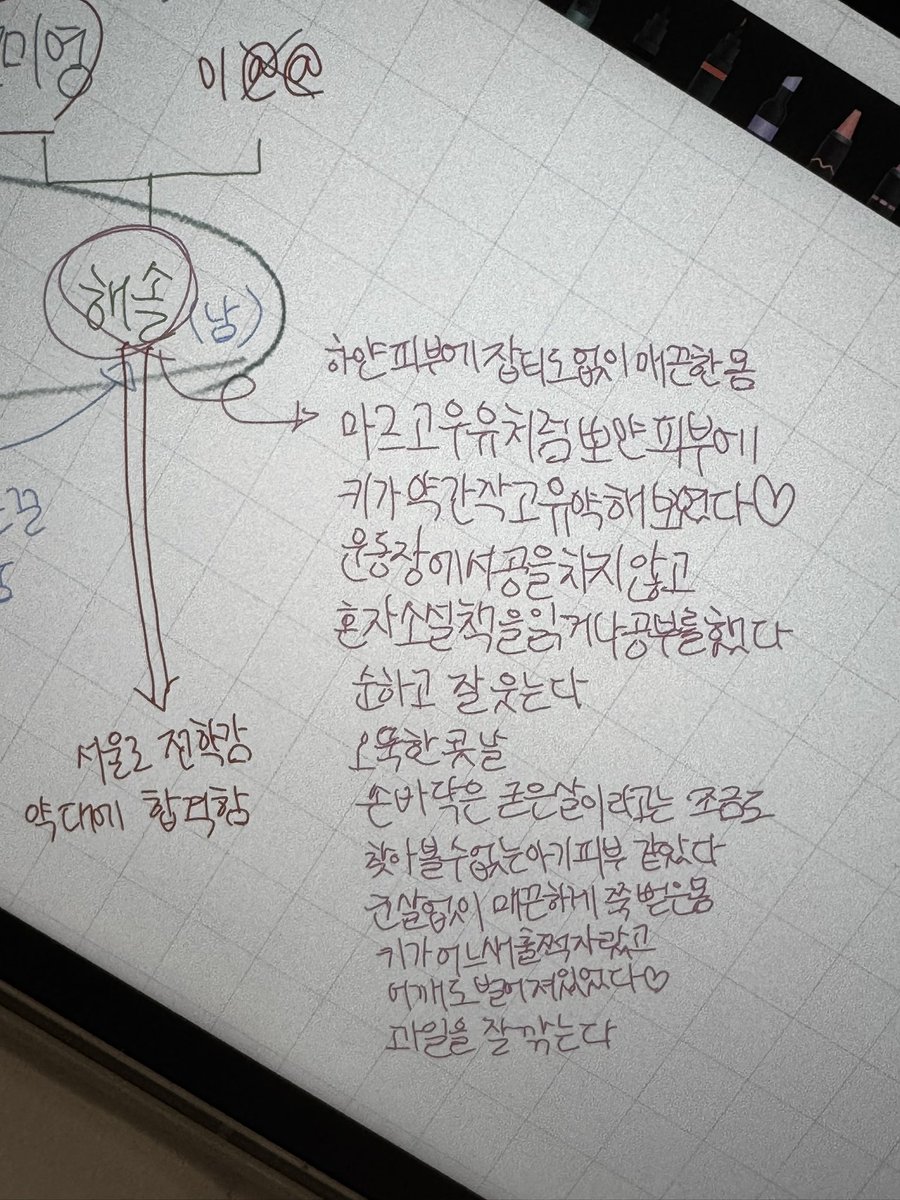 미영
이@@
해솔
(남)
하얀 피부에 잡티도 없이 매끈한 몸
마르고 우유처럼 뽀얀 피부에
키가 약간 작고 유약해 보였다♡
운동장에서 공을 차지 않고
혼자 소설책을 읽거나 공부를 했다
순하고 잘 웃는다
오뚝한 콧날
손바닥은 굳은살이라고는 조금도
찾아볼 수 없는 아기피부 같았다
군살없이 매끈하게 쭉 뻗은 몸
키가 어느새 훌쩍 자랐고
어깨도 벌어져 있었다♡
과일을 잘 깎는다
서울로 전학감
약대에 합격함